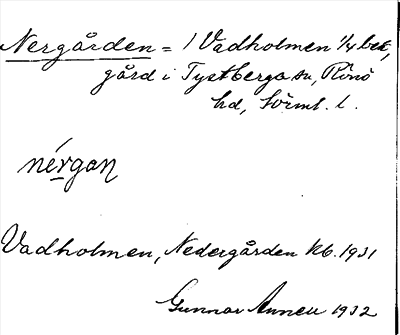 Nergården = 1 Vadholmen 1/4 bek,
gård i Tystberga sn, Rönö
hd, Sörml. l.
nérgan
Vadholmen, Nedergården Kb. 1931
Gunnar Annell 1932